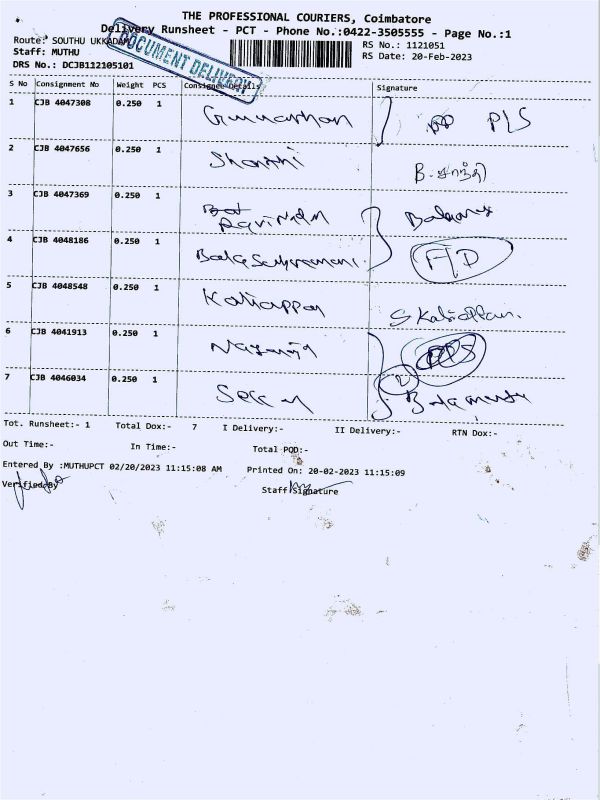 THE PROFESSIONAL COURIERS, Coimbatore
Delivery Runsheet - PCT - Phone No.:0422-3505555 - Page No.:1
Route: SOUTHU UKKADAM
RS No.: 1121051
Staff: MUTHU
RS Date: 20-Feb-2023
DRS No.: DCJB112105101
DOCUMENT DELIVERY
S No Consignment No Weight PCS Consignee Details Signature
1 CJB 4047308 0.250 1 PLS
2 CJB 4047656 0.250 1 Shanthi B. சாந்தி
3 CJB 4047369 0.250 1
4 CJB 4048186 0.250 1
5 CJB 4048548 0.250 1 Kaliappan
6 CJB 4041913 0.250 1
7 CJB 4046034 0.250 1
Tot. Runsheet:- 1 Total Dox:- 7 I Delivery:- II Delivery:- RTN Dox:-
Out Time:- In Time:- Total POD:-
Entered By :MUTHUPCT 02/20/2023 11:15:08 AM Printed On: 20-02-2023 11:15:09
Verified By Staff Signature